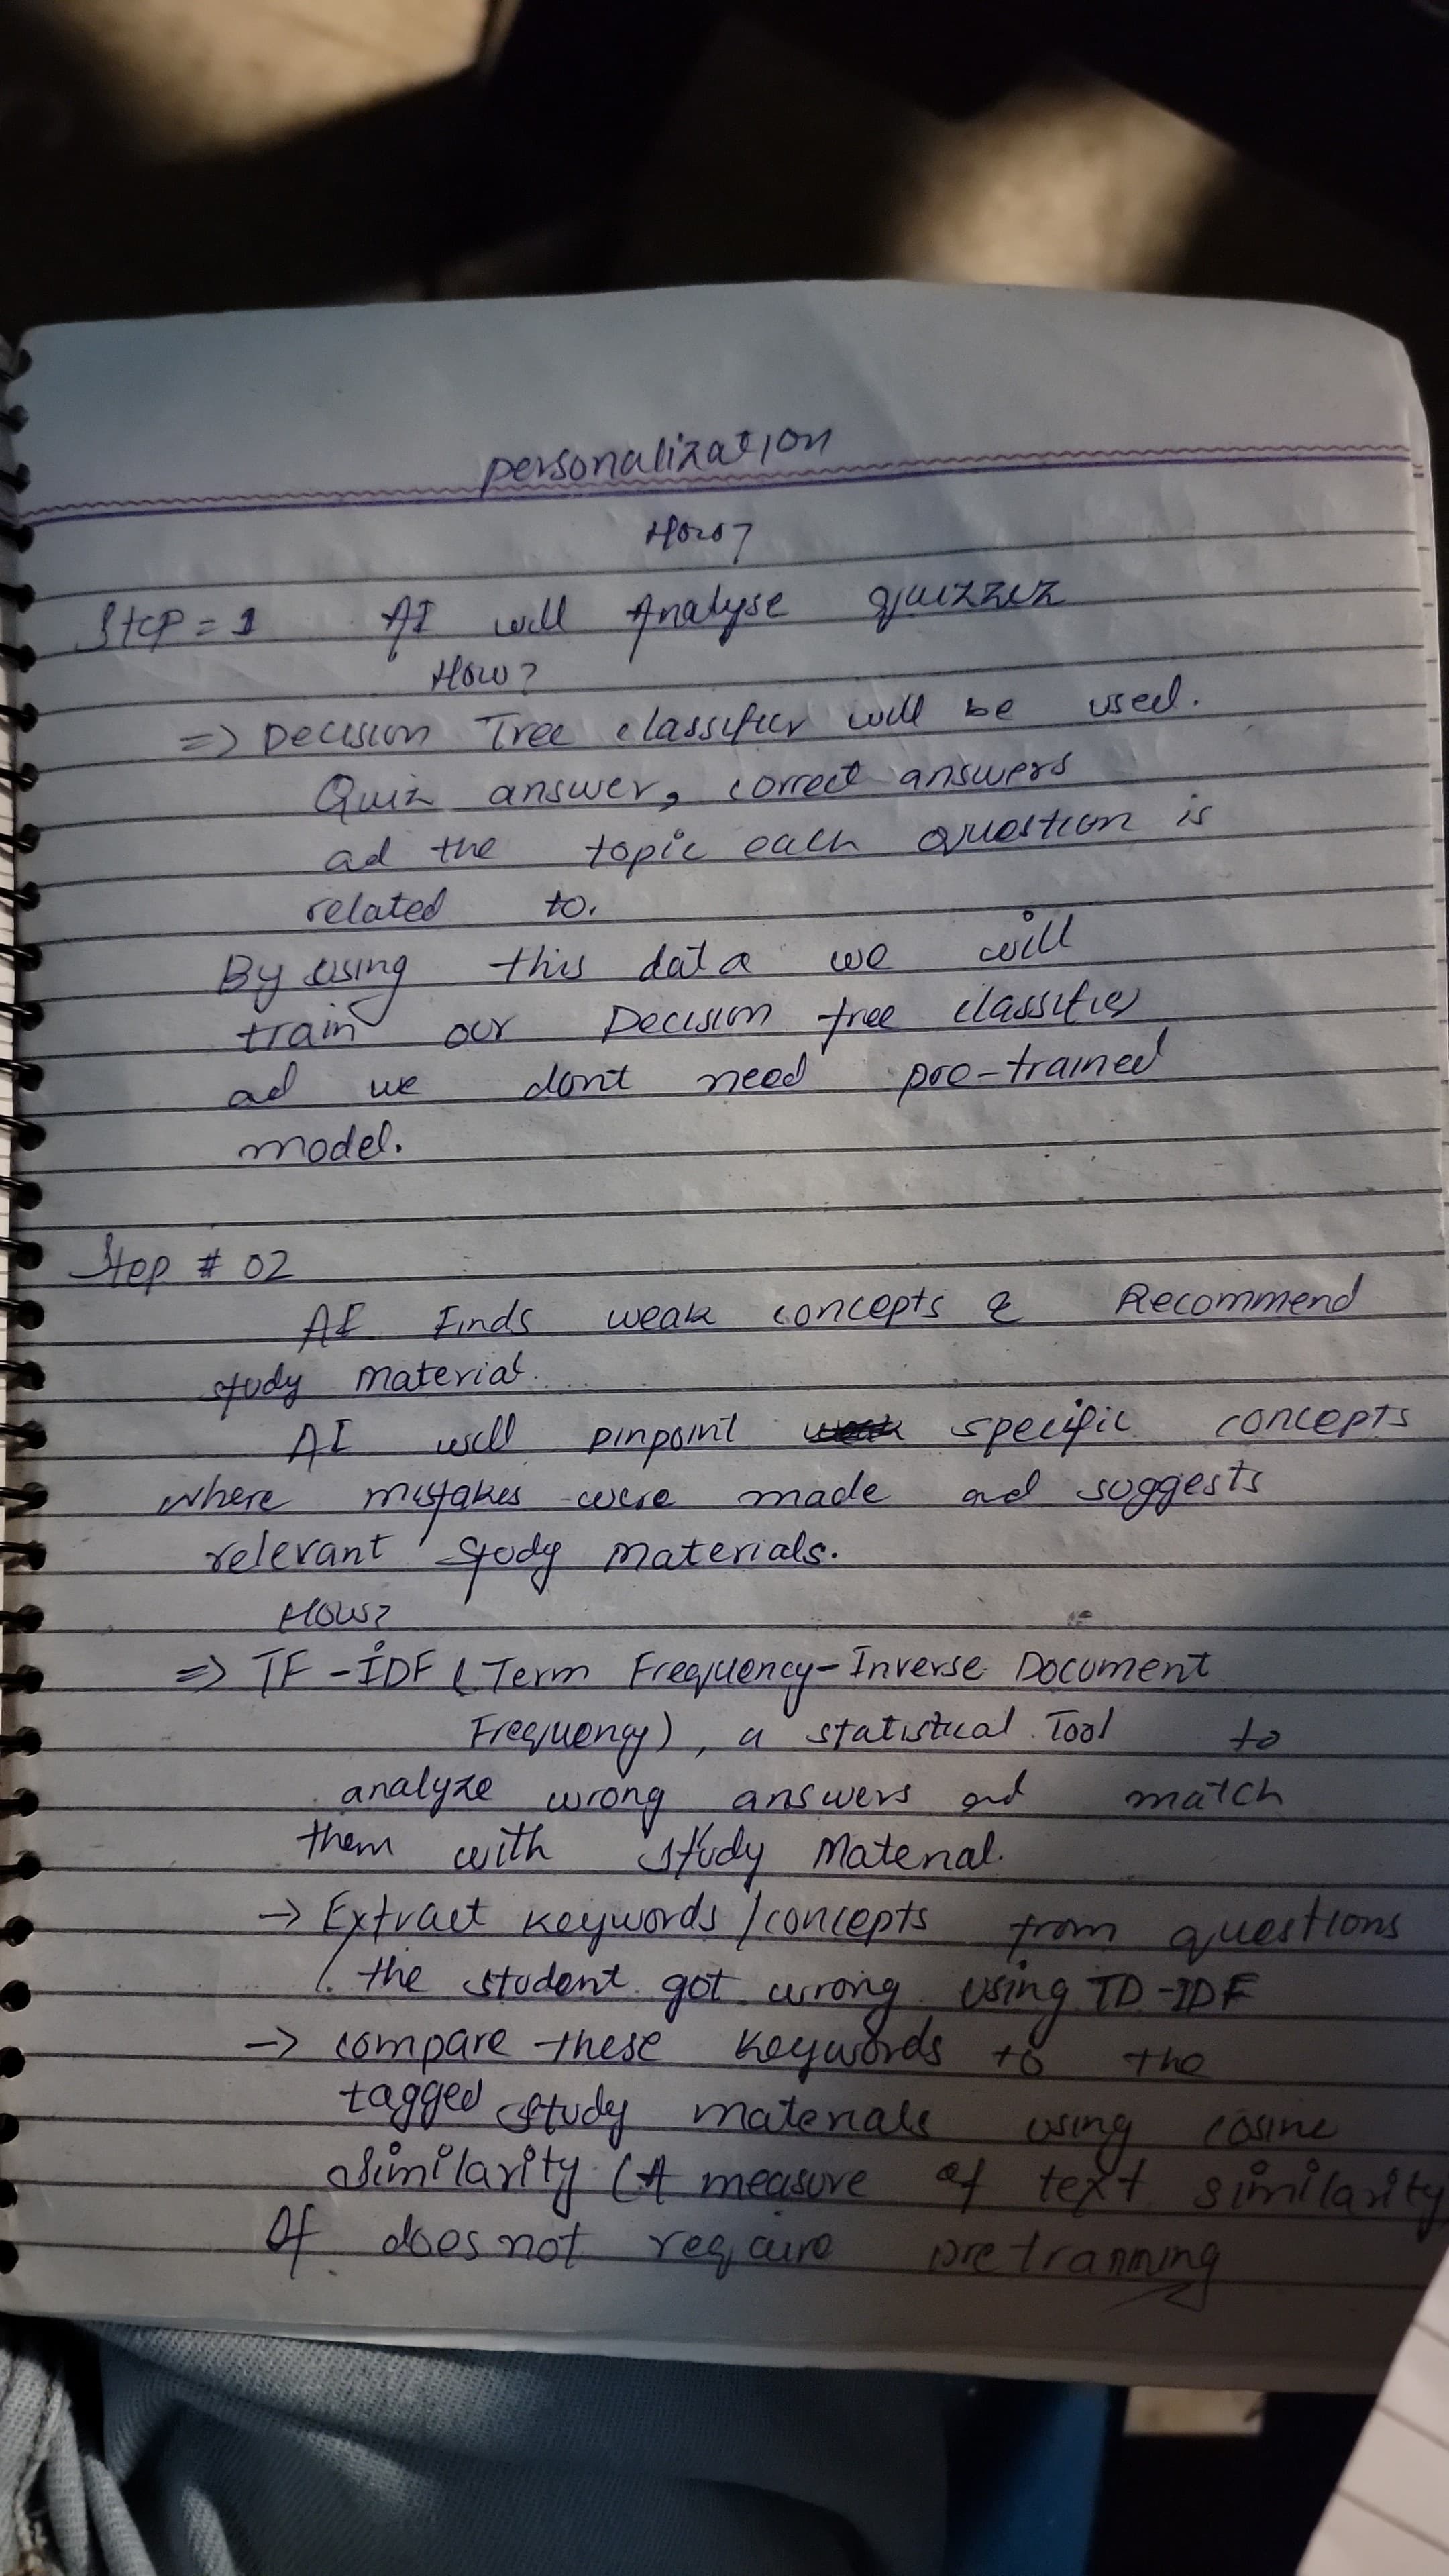 personalization
How?
Step = 1 AI will Analyse quizzez
How?
=> Decision Tree classifier will be used.
Quiz answer, correct answers
ad the topic each question is
related to.
By using this data we will
train our Decision tree classifier
ad we dont need pre-trained
model.
Step # 02
AI Finds weak concepts & Recommend
study material.
AI will pinpoint specific concepts
where mistakes were made and suggests
relevant study materials.
How?
=> TF-IDF (Term Frequency-Inverse Document
Frequency), a statistical Tool to
analyze wrong answers and match
them with study Material.
-> Extract keywords/concepts from questions
the student got wrong using TD-IDF
-> compare these keywords to the
tagged study materials using cosine
similarity (A measure of text similarity
If does not require pretranning